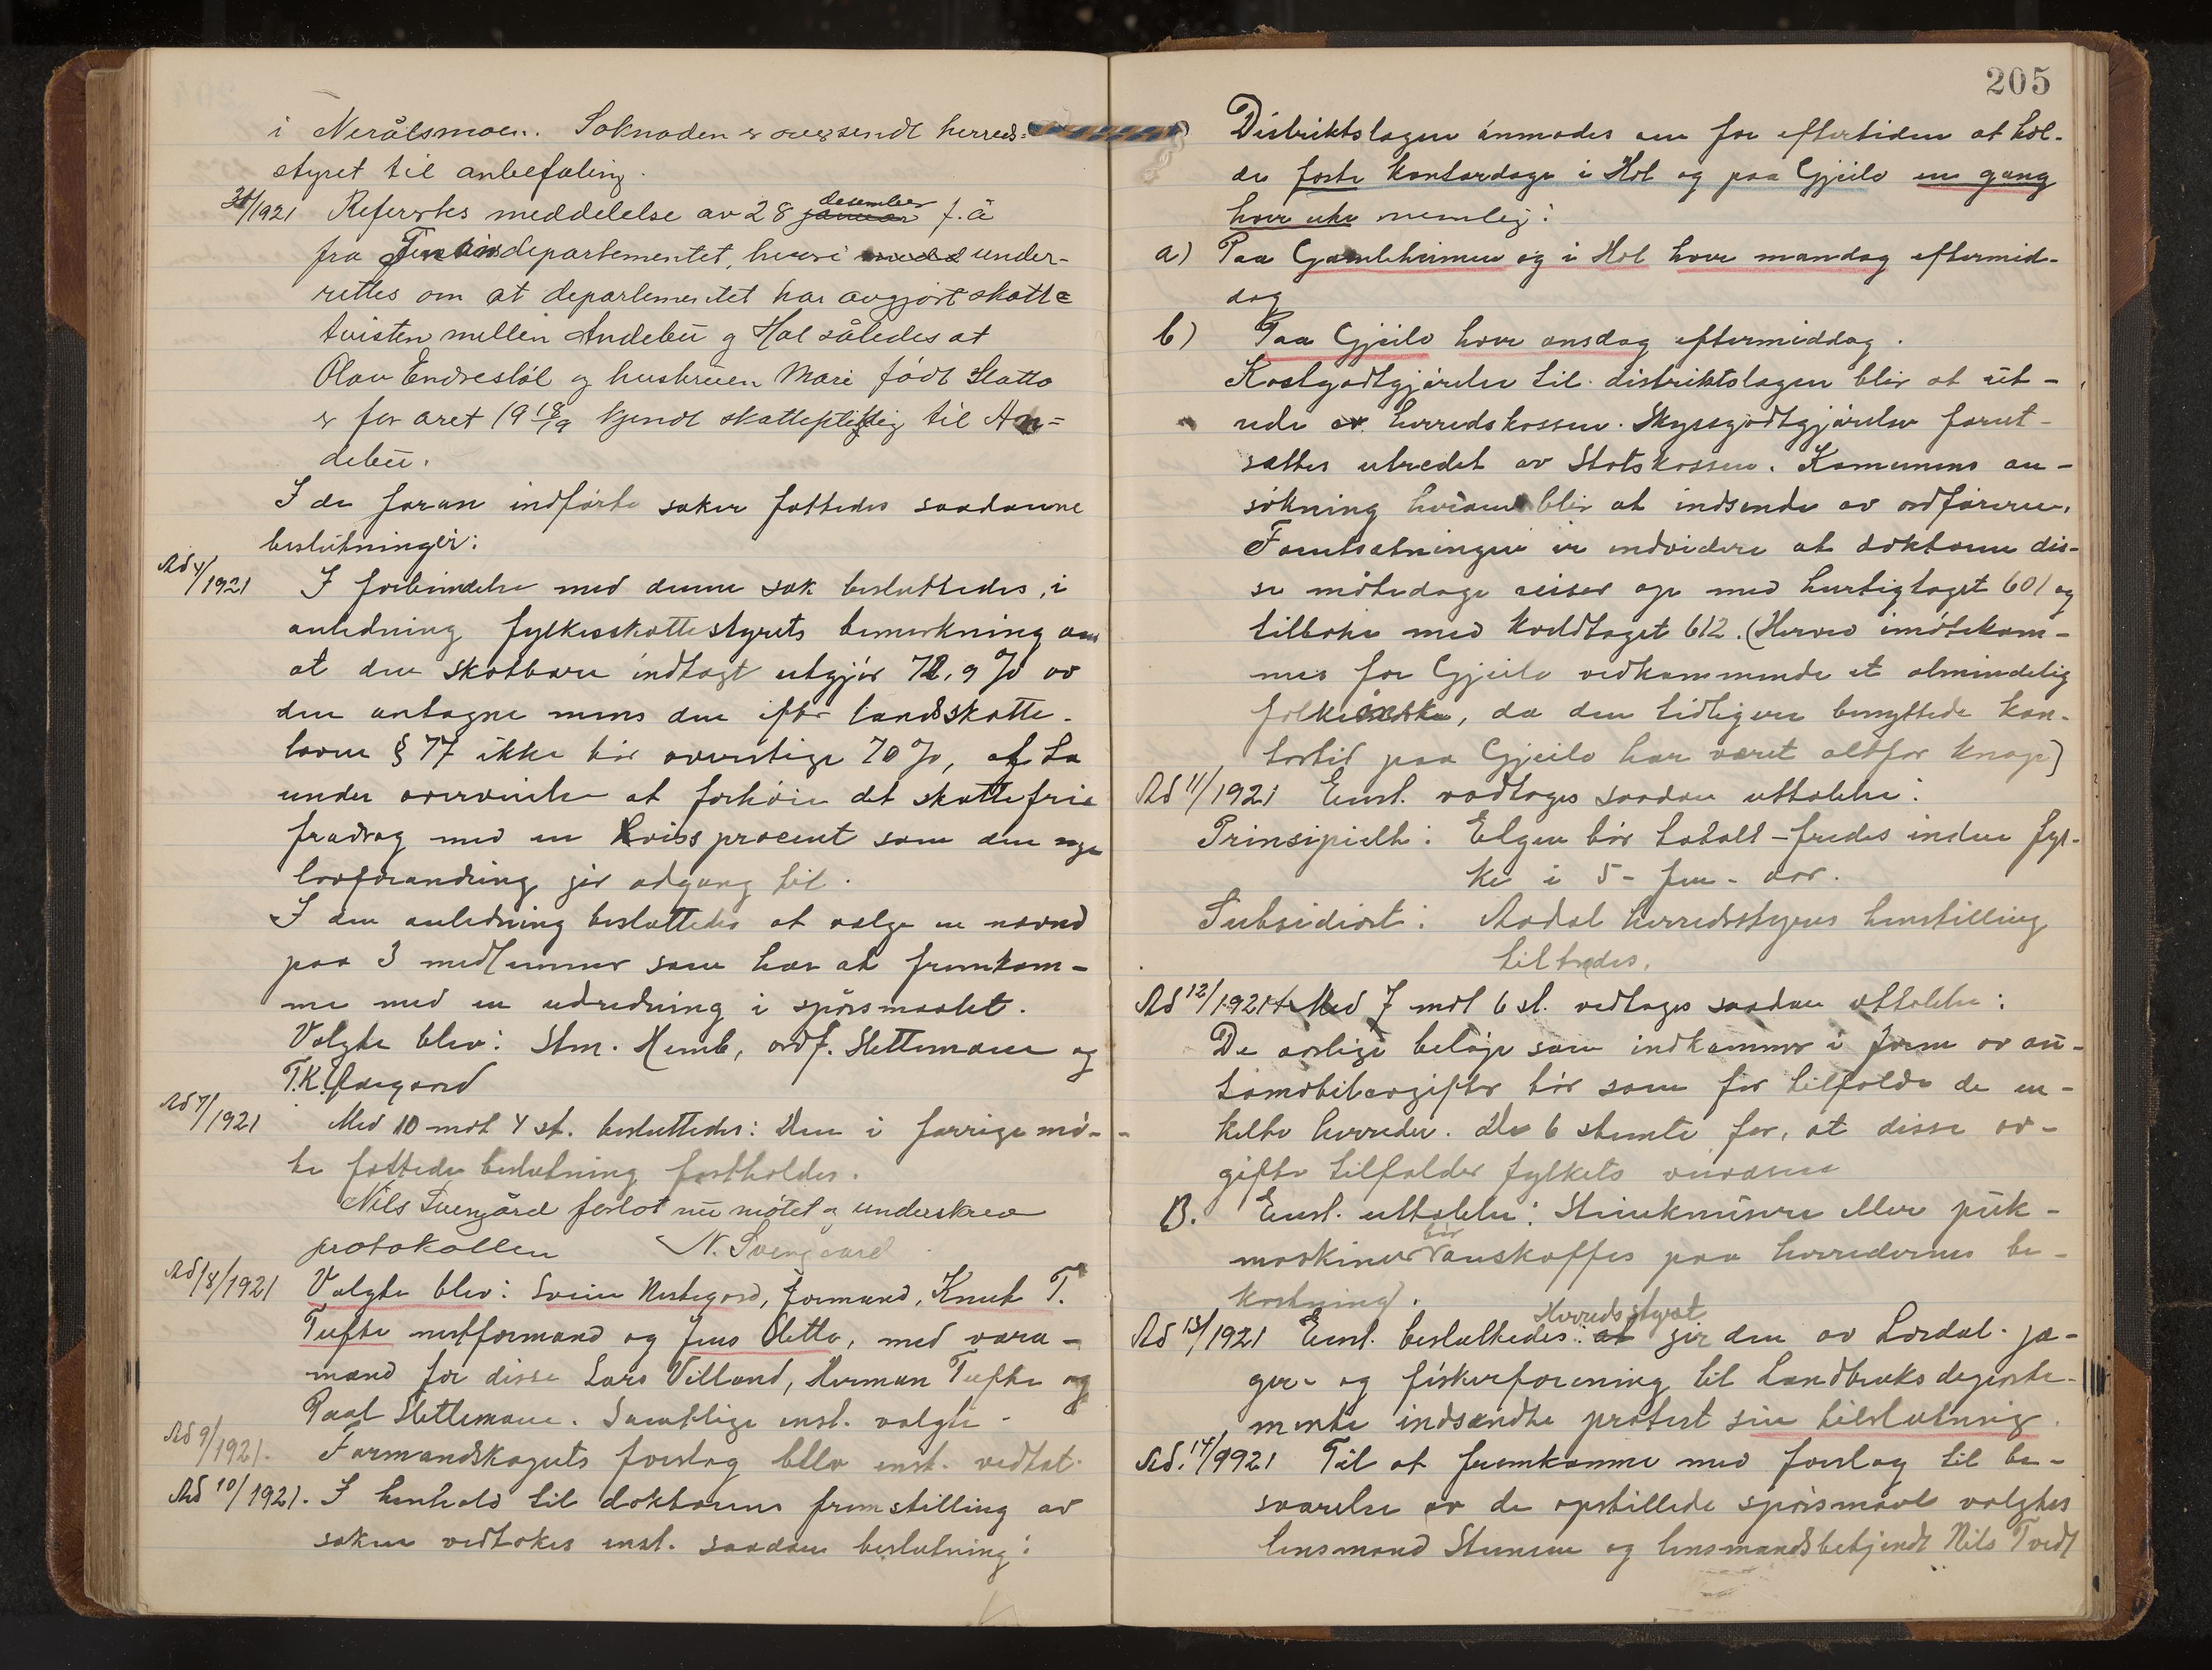 i Nerålsmoen. Søknaden er oversendt herreds=
styret til anbefaling.
/1921 Referertes meddelelse av 28 januar desember f. å
fra Finansdepartementet, hvori under-
rettes om at departementet har avgjort skatte
tvisten mellem Andebu og Hol således at
Olav Endrestøl og hustruen Mari født Sletto
er for året 1918/9 kjendt skattepliktig til An=
debu.
I de foran indførte saker fattedes saadanne
beslutninger:
Ad 4/1921 I forbindelse med denne sak besluttedes, i
anledning fylkesskattestyrets bemerkning om
at den skatbare indtægt utgjør 72,9 % av
den antagne mens den efter landsskatte-
loven § 77 ikke bør overstige 70 %, at ta
under overveielse at forhøie det skattefrie
fradrag med en viss procent som den nye
lovforandring gir adgang til.
I den anledning besluttedes at vælge en nævnd
paa 3 medlemmer som har at fremkom-
me med en utredning i spørsmaalet.
Valgte blev: Stm. Hemb, ordf. Slettemoen og
T.K.
Ad 7/1921 Med 10 mot 4 st. besluttedes: Den i forrige mø-
te fattede beslutning fastholdes.
Nils Svengård forlot nu møtet og underskrev
protokollen N. Svengaard
Ad 8/1921 Valgte blev: Svein Nestegard, formand, Knut T.
Tufte nestformand og Jens Sletto, med vara-
mænd for disse Lars Villand, Herman Tufte og
Paal Slettemoen. Samtlige enst. valgte.
Ad 9/1921. Formandskapets forslag blev enst. vedtat.
Ad 10/1921. I henhold til doktorens fremstilling av
saken vedtokes enst. saadan beslutning:
205
Distriktslægen anmodes om for eftertiden at hol-
de faste kontordage i Hol og paa Gjeilo en gang
hver uke nemlig:
a) Paa Gamleheimen og i Hol hver mandag eftermid-
dag
b) Paa Gjeilo hver onsdag eftermiddag.
Kostgodtgjørelse til distriktslægen blir at ut-
rede av herredskassen. Skyssgodtgjørelse forut-
sættes utredet av Statskassen. Kommunens an-
søkning herom blir at indsende av ordføreren.
Forutsætningen er endvidere at doktoren dis-
se møtedage reiser op med hurtigtoget 601 og
tilbake med kveldtoget 612. (Herved imøtekom-
mes for Gjeilo vedkommende et almindelig
folkeønske, da den tidligere benyttede kon-
tortid paa Gjeilo har været altfor knap)
Ad 11/1921 Enst. vedtoges saadan uttalelse:
Prinsipielt: Elgen bør totalt-fredes inden fyl-
ket i 5 - fem - aar.
Subsidiært: Aadal herredsstyres henstilling
tiltrædes.
Ad 12/1921 Med 7 mot 6 st. vedtoges saadan uttalelse:
De aarlige beløp som indkommer i form av au-
tomobilavgifter bør som før tilfalde de en-
kelte herreder. De 6 stemte for, at disse av-
gifter tilfalder fylkets veivæsen
B. Enst. uttalelse: Steinknusere eller puk-
maskiner bør anskaffes paa herredernes be-
kostning.
Ad 13/1921 Enst. besluttedes: at Herredsstyret gir den av Lærdal jæ-
ger- og fiskerforening til Landbruksdeparte-
mentet indsendte protest sin tilslutning.
Ad. 14/9921 Til at fremkomme med forslag til be-
svarelse av de opstillede spørsmaal valgtes
lensmand Stenem og lensmandsbetjent Nils Tvedt